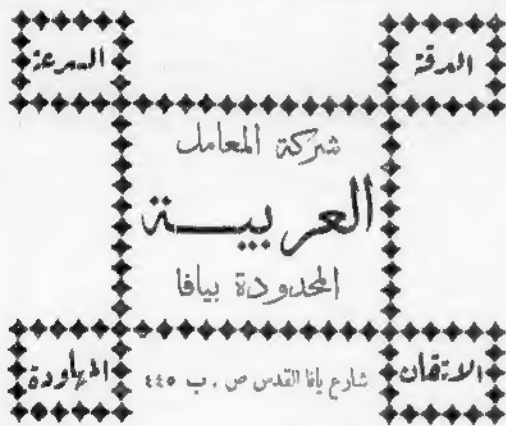 الدقة
السرعة
شركة المعامل
العربيــة
المحدودة بيافا
الاتقان
شارع يافا القدس ص . ب ٤٤٥
المهاودة